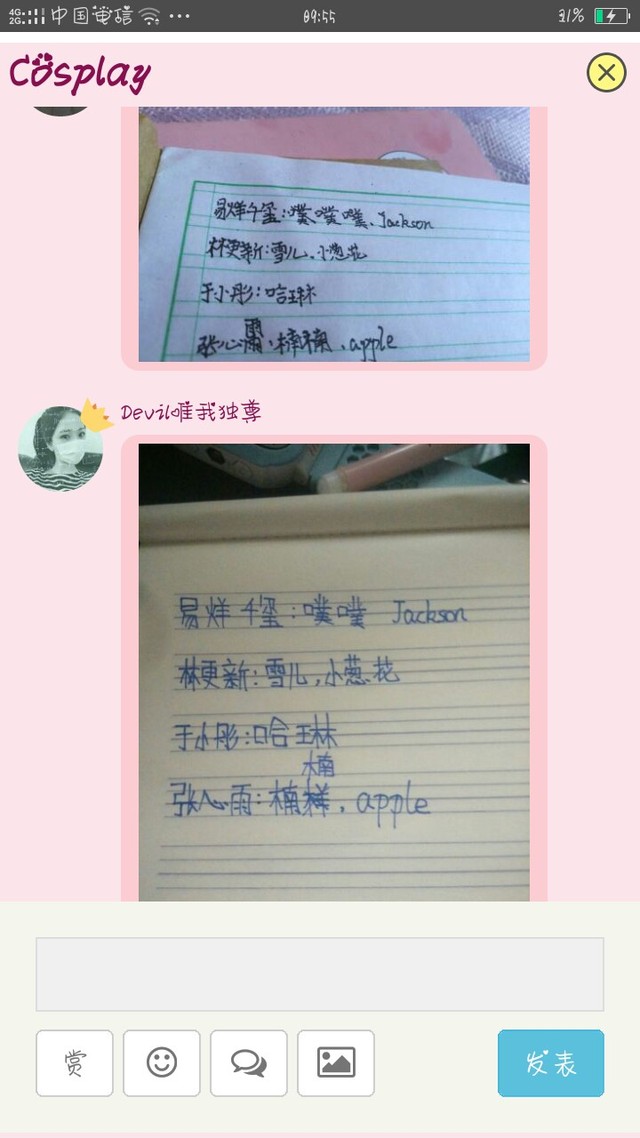 4G 2G 中国电信 ••• 09:55 31%
Cosplay
易烊千玺:噗噗噗、Jackson
林更新:雪儿、小葱花
于小彤:哈琳
张心雨、楠楠、apple
Devil唯我独尊
易烊千玺:噗噗 Jackson
林更新:雪儿,小葱花
于小彤:哈琳
楠
张心雨:楠,apple
赏
发表